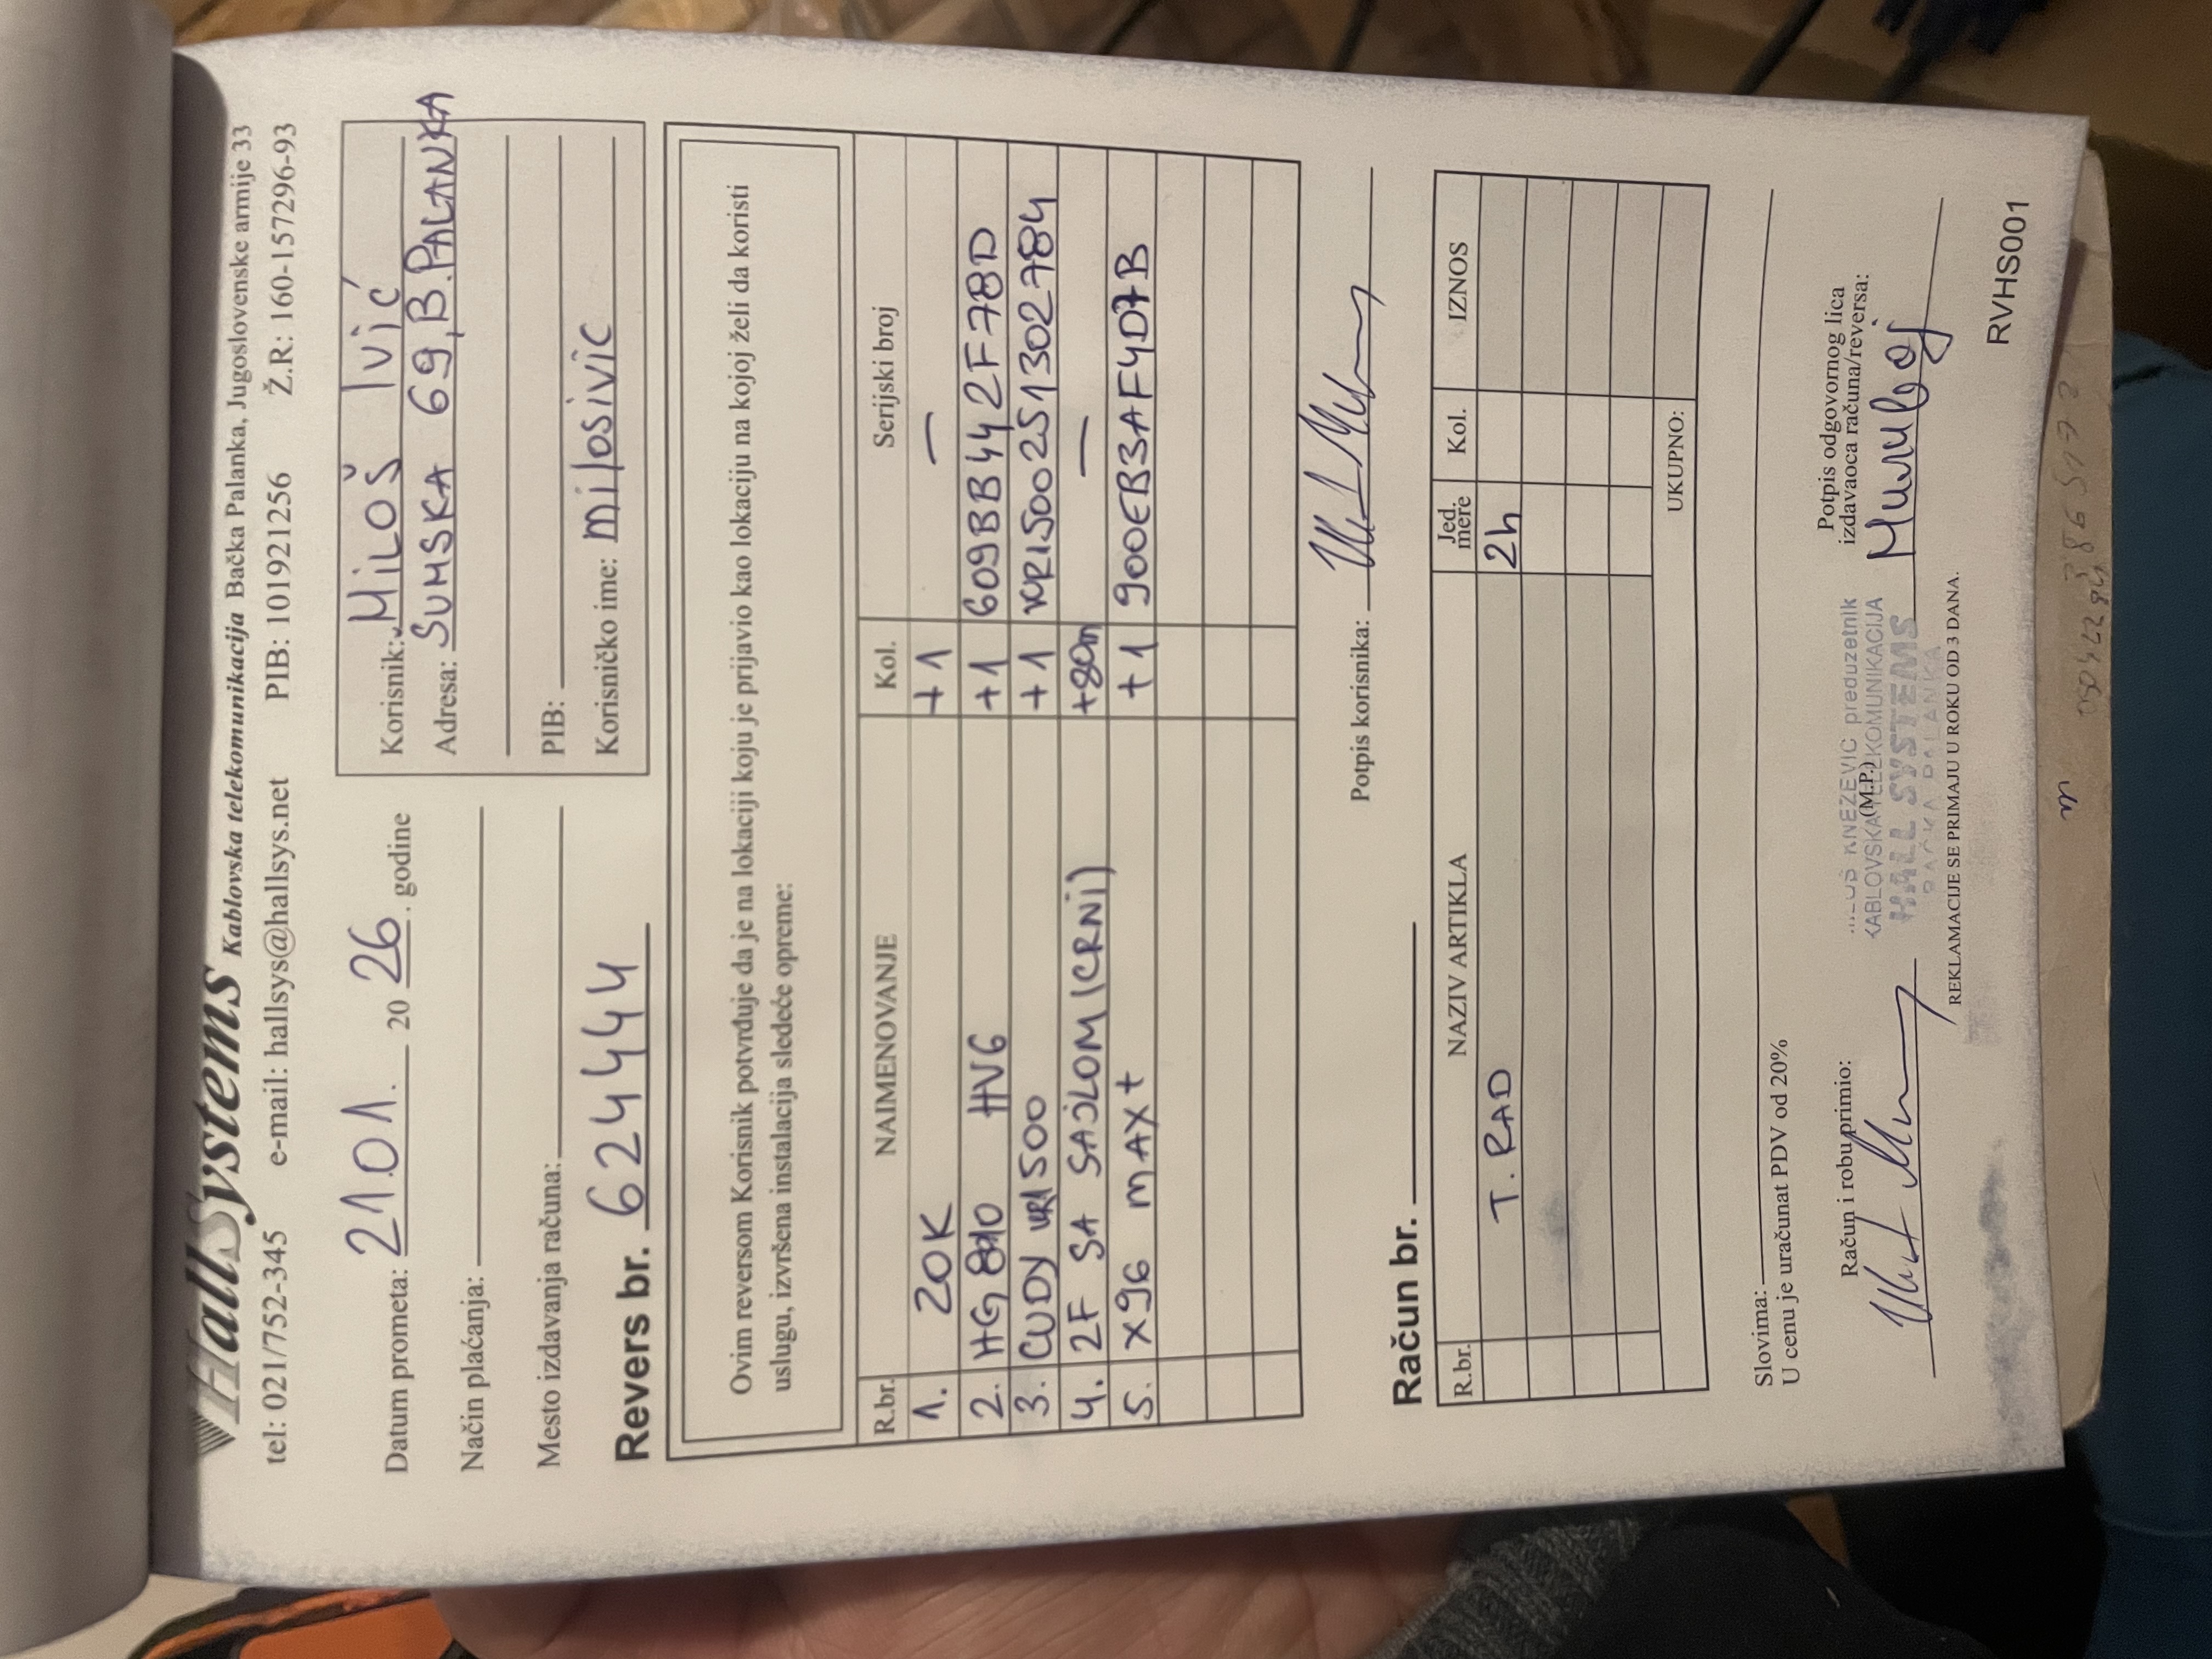 HallSystems Kablovska telekomunikacija Bačka Palanka, Jugoslovenske armije 33
tel: 021/752-345 e-mail: hallsys@hallsys.net PIB: 101921256 Ž.R: 160-157296-93
Datum prometa: 21.01. 20 26. godine
Način plaćanja:
Mesto izdavanja računa:
Korisnik: MILOŠ IVIĆ
Adresa: SUMSKA 69, B. PALANKA
PIB:
Korisničko ime: milosivic
Revers br. 624444
Ovim reversom Korisnik potvrđuje da je na lokaciji koju je prijavio kao lokaciju na kojoj želi da koristi
uslugu, izvršena instalacija sledeće opreme:
R.br. NAIMENOVANJE Kol. Serijski broj
1. ZOK +1 —
2. HG HVG +1 609BB442F78D
3. CUDY WR1500 +1 WR1500251302784
4. 2F SA SAJLOM (CRNI) +80m —
5. X96 MAX+ +1 900EB3AF4D7B
Potpis korisnika:
Račun br.
R.br. NAZIV ARTIKLA Jed. mere Kol. IZNOS
T. RAD 2h
UKUPNO:
Slovima:
U cenu je uračunat PDV od 20%
Račun i robu primio:
(M.P.)
KNEŽEVIĆ preduzetnik
KABLOVSKA TELEKOMUNIKACIJA
HALL SYSTEMS
BAČKA PALANKA
Potpis odgovornog lica
izdavaoca računa/reversa:
REKLAMACIJE SE PRIMAJU U ROKU OD 3 DANA.
RVHS001